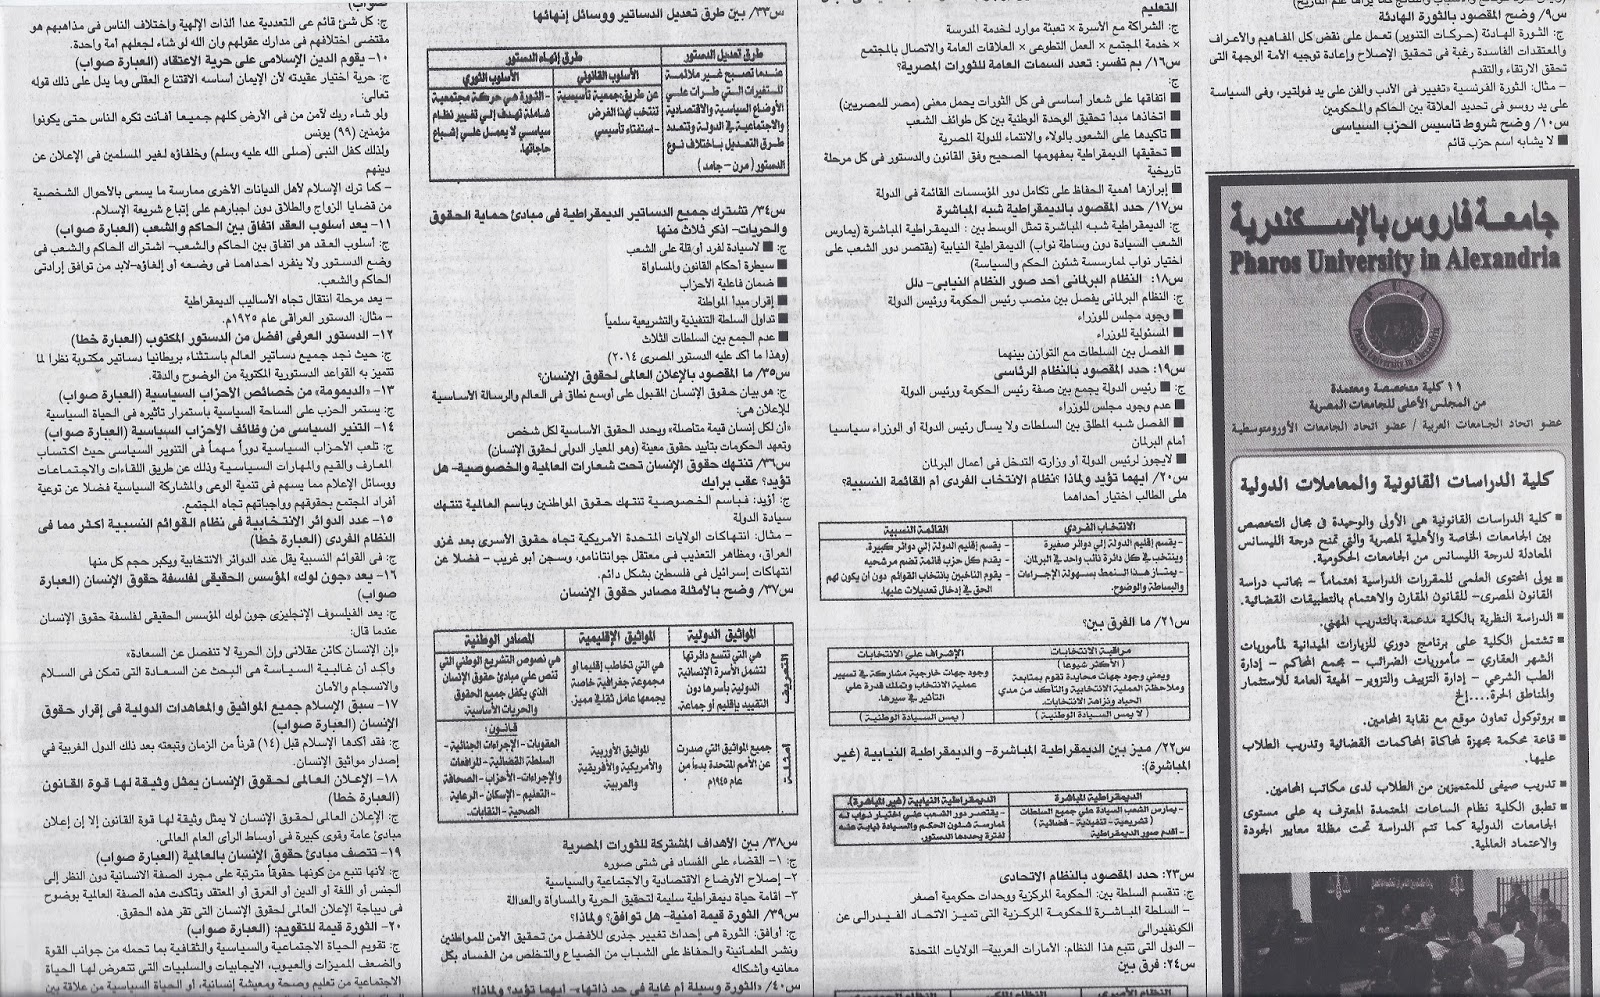 س٩/ وضح المقصود بالثورة الهادئة
ج: الثورة الهادئة (حركات التنوير) تعمل على نقض كل المفاهيم والأعراف
والمعتقدات الفاسدة رغبة فى تحقيق الإصلاح وإعادة توجيه الأمة الوجهة التى
تحقق الارتقاء والتقدم
- مثال: الثورة الفرنسية «تغيير فى الأدب والفن على يد فولتير، وفى السياسة
على يد روسو فى تحديد العلاقة بين الحاكم والمحكومين
س١٠/ وضح شروط تاسيس الحزب السياسى
■ لا يشابه اسم حزب قائم
جامعة فاروس بالإسكندرية
Pharos University in Alexandria
P U A
Pharos University in Alexandria
١١ كلية متخصصة ومعتمدة
من المجلس الأعلى للجامعات المصرية
عضو اتحاد الجامعات العربية / عضو اتحاد الجامعات الأورومتوسطية
كلية الدراسات القانونية والمعاملات الدولية
■ كلية الدراسات القانونية هى الأولى والوحيدة فى مجال التخصص
بين الجامعات الخاصة والأهلية المصرية والتى تمنح درجة الليسانس
المعادلة لدرجة الليسانس من الجامعات الحكومية.
■ يولى المحتوى العلمى للمقررات الدراسية اهتماماً - بجانب دراسة
القانون المصرى- للقانون المقارن والاهتمام بالتطبيقات القضائية.
■ الدراسة النظرية بالكلية مدعمة بالتدريب المهنى.
■ تشتمل الكلية على برنامج دوري للزيارات الميدانية لمأموريات
الشهر العقاري - مأموريات الضرائب - مجمع المحاكم - إدارة
الطب الشرعي - إدارة التزييف والتزوير- الهيئة العامة للاستثمار
والمناطق الحرة....إلخ
■ بروتوكول تعاون موقع مع نقابة المحامين.
■ قاعة محكمة مجهزة لمحاكاة المحاكمات القضائية وتدريب الطلاب
عليها.
■ تدريب صيفى للمتميزين من الطلاب لدى مكاتب المحامين.
■ تطبق الكلية نظام الساعات المعتمدة المعترف به على مستوى
الجامعات الدولية كما تتم الدراسة تحت مظلة معايير الجودة
والاعتماد العالمية.
التعليم
ج: الشراكة مع الأسرة × تعبئة موارد لخدمة المدرسة
× خدمة المجتمع × العمل التطوعى × العلاقات العامة والاتصال بالمجتمع
س١٦/ بم تفسر: تعدد السمات العامة للثورات المصرية؟
ج:
■ اتفاقها على شعار أساسى فى كل الثورات يحمل معنى (مصر للمصريين)
■ اتخاذها مبدأ تحقيق الوحدة الوطنية بين كل طوائف الشعب
■ تاكيدها على الشعور بالولاء والانتماء للدولة المصرية
■ تحقيقها الديمقراطية بمفهومها الصحيح وفق القانون والدستور فى كل مرحلة
تاريخية
■ إبرازها أهمية الحفاظ على تكامل دور المؤسسات القائمة فى الدولة
س١٧/ حدد المقصود بالديمقراطية شبه المباشرة
ج: الديمقراطية شبه المباشرة تمثل الوسط بين : الديمقراطية المباشرة (يمارس
الشعب السيادة دون وساطة نواب) الديمقراطية النيابية (يقتصر دور الشعب على
اختيار نواب لممارسسة شئون الحكم والسياسة)
س١٨: النظام البرلمانى احد صور النظام النيابى- دلل
ج: النظام البرلمانى يفصل بين منصب رئيس الحكومة ورئيس الدولة
■ وجود مجلس للوزراء
■ المسئولية للوزراء
■ الفصل بين السلطات مع التوازن بينهما
س١٩: حدد المقصود بالنظام الرئاسى
ج: ■ رئيس الدولة يجمع بين صفة رئيس الحكومة ورئيس الدولة
■ عدم وجود مجلس للوزراء
■ الفصل شبه المطلق بين السلطات ولا يسأل رئيس الدولة أو الوزراء سياسيا
أمام البرلمان
■ لايجوز لرئيس الدولة أو وزارته التدخل فى أعمال البرلمان
س٢٠/ ايهما تؤيد ولماذا ؟نظام الانتخاب الفردى ام القائمة النسبية؟
هلى الطالب اختيار أحداهما
الانتخاب الفردي
القائمة النسبية
- يقسم إقليم الدولة إلي دوائر صغيرة
وينتخب في كل دائرة نائب واحد في البرلمان.
- يمتاز هذا النمط بسهولة الإجراءات
والبساطة والوضوح.
- يقسم إقليم الدولة إلي دوائر كبيرة.
- يقدم كل حزب قائمة تضم مرشحيه
- يقوم الناخبين بانتخاب القوائم دون أن يكون لهم
الحق في إدخال تعديلات عليها.
س٢١/ ما الفرق بين؟
مراقبة الانتخابات
( الأكثر شيوعا )
ويعني وجود جهات محايدة تقوم بمتابعة
وملاحظة العملية الانتخابية والتأكد من مدي
الحياد ونزاهة الانتخابات.
( لا يمس السيادة الوطنية )
الإشراف علي الانتخابات
وجود جهات خارجية مشاركة في تسيير
عملية الانتخاب وتملك قدرة علي
التأثير في سيرها.
( يمس السيادة الوطنية )
س٢٢/ ميز بين الديمقراطية المباشرة- والديمقراطية النيابية (غير
المباشرة):
الديمقراطية المباشرة
- يمارس الشعب السيادة علي جميع السلطات
( تشريعية - تنفيذية - قضائية )
- أقدم صور الديمقراطية
الديمقراطية النيابية (غير المباشرة).
- يقتصر دور الشعب علي اختيار نواب له
لممارسة شئون الحكم والسيادة نيابة عنه
لفترة يحددها الدستور.
س٢٣: حدد المقصود بالنظام الاتحادى
ج: تنقسم السلطة بين: الحكومة المركزية ووحدات حكومية أصغر
- السلطة المباشرة للحكومة المركزية التى تميز الاتحاد الفيدرالى عن
الكونفيدرالى
- الدول التى تتبع هذا النظام: الأمارات العربية- الولايات المتحدة
س٢٤: فرق بين
س٣٣/ بين طرق تعديل الدساتير ووسائل إنهائها
طرق تعديل الدستور
طرق إنهاء الدستور
الأسلوب القانوني
الأسلوب الثوري
عندما تصبح غير ملائمة
للتغيرات التي طرأت علي
الأوضاع السياسية والاقتصادية
والاجتماعية في الدولة وتتعدد
طرق التعديل باختلاف نوع
الدستور ( مرن - جامد )
عن طريق:جمعية تأسيسية
تنتخب لهذا الغرض
- استفتاء تأسيسي
- الثورة هي حركة مجتمعية
شاملة تهدف إلي تغيير نظام
سياسي لا يعمل علي إشباع
حاجاتها.
س٣٤/ تشترك جميع الدساتير الديمقراطية فى مبادئ حماية الحقوق
والحريات- اذكر ثلاث منها
ج: ■ لاسيادة لفرد أو قلة على الشعب
■ سيطرة أحكام القانون والمساواة
■ ضمان فاعلية الأحزاب
■ إقرار مبدأ المواطنة
■ تداول السلطة التنفيذية والتشريعية سلمياً
■ عدم الجمع بين السلطات الثلاث
(وهذا ما اكد عليه الدستور المصرى ٢٠١٤)
س٣٥/ ما المقصود بالإعلان العالمى لحقوق الإنسان؟
ج: هو بيان حقوق الإنسان المقبول على أوسع نطاق فى العالم والرسالة الأساسية
للإعلان هى:
«أن لكل إنسان قيمة متأصلة» ويحدد الحقوق الأساسية لكل شخص
وتعهد الحكومات بتأييد حقوق معينة (وهو المعيار الدولى لحقوق الإنسان)
س٣٦/ تنتهك حقوق الإنسان تحت شعارات العالمية والخصوصية- هل
تؤيد؟ عقب برايك
ج: أؤيد: فباسم الخصوصية تنتهك حقوق المواطنين وباسم العالمية تنتهك
سيادة الدولة
- مثال: انتهاكات الولايات المتحدة الأمريكية تجاه حقوق الأسرى بعد غزو
العراق، ومظاهر التعذيب فى معتقل جوانتانامو، وسجن أبو غريب - فضلا عن
انتهاكات إسرائيل فى فلسطين بشكل دائم.
س٣٧/ وضح بالأمثلة مصادر حقوق الإنسان
المواثيق الدولية
المواثيق الإقليمية
المصادر الوطنية
التعريف
هي التي تتسع دائرتها
لتشمل الأسرة الإنسانية
الدولية بأسرها دون
التقييد بإقليم أو جماعة.
هي التي تخاطب إقليما أو
مجموعة جغرافية خاصة
يجمعها عامل ثقافي مميز.
هي نصوص التشريع الوطني التي
تنص علي مبادئ حقوق الإنسان
الذي يكفل جميع الحقوق
والحريات الأساسية.
أمثلة
جميع المواثيق التي صدرت
عن الأمم المتحدة بدءاً من
عام ١٩٤٥م
المواثيق الأوربية
والأمريكية والأفريقية
والعربية.
قانون:
العقوبات - الإجراءات الجنائية -
السلطة القضائية - المرافعات
والإجراءات- الأحزاب - الصحافة
- التعليم - الإسكان - الرعاية
الصحية - النقابات.
س٣٨/ بين الأهداف المشتركة للثورات المصرية
ج: ١- القضاء على الفساد فى شتى صوره
٢- إصلاح الأوضاع الاقتصادية والاجتماعية والسياسية
٣- اقامة حياة ديمقراطية سليمة لتحقيق الحرية والمساواة والعدالة
س٣٩/ الثورة قيمة أمنية- هل توافق؟ ولماذا؟
ج: أوافق: الثورة هى إحداث تغيير جذرى للأفضل من تحقيق الأمن للمواطنين
ونشر الطمأنينة والحفاظ على الشباب من الضياع والتخلص من الفساد بكل
معانيه وأشكاله
س٤٠/ «الثورة وسيلة أم غاية فى حد ذاتها»- ايهما تؤيد؟ ولماذا؟
صواب)
ج: كل شئ قائم على التعددية عدا الذات الإلهية واختلاف الناس فى مذاهبهم هو
مقتضى اختلافهم فى مدارك عقولهم وان الله لو شاء لجعلهم امة واحدة.
١٠- يقوم الدين الإسلامى على حرية الاعتقاد (العبارة صواب)
ج: حرية أختيار عقيدته لأن الإيمان أساسه الاقتناع العقلى وما يدل على ذلك قوله
تعالى:
ولو شاء ربك لآمن من فى الأرض كلهم جميعا أفانت تكره الناس حتى يكونوا
مؤمنين (٩٩) يونس
ولذلك كفل النبى (صلى الله عليه وسلم) وخلفاؤه لغير المسلمين فى الإعلان عن
دينهم
- كما ترك الإسلام لأهل الديانات الأخرى ممارسة ما يسمى بالأحوال الشخصية
من قضايا الزواج والطلاق دون اجبارهم على إتباع شريعة الإسلام.
١١- يعد أسلوب العقد اتفاق بين الحاكم والشعب (العبارة صواب)
ج: أسلوب العقد هو اتفاق بين الحاكم والشعب- اشتراك الحاكم والشعب فى
وضع الدستور ولا ينفرد احداهما فى وضعه أو إلغاؤه-لابد من توافق إرادتى
الحاكم والشعب.
- يعد مرحلة انتقال تجاه الأساليب الديمقراطية
- مثال: الدستور العراقى عام ١٩٢٥م.
١٢- الدستور العرفى افضل من الدستور المكتوب (العبارة خطا)
ج: حيث نجد جميع دساتير العالم باستثناء بريطانيا دساتير مكتوبة نظرا لما
تتميز به القواعد الدستورية المكتوبة من الوضوح والدقة.
١٣- «الديمومة» من خصائص الأحزاب السياسية (العبارة صاب)
ج: يستمر الحزب على الساحة السياسية باستمرار تاثيره فى الحياة السياسية
١٤- التنير السياسى من وظائف الأحزاب السياسية (العبارة صواب)
ج: تلعب الأحزاب السياسية دوراً مهماً فى التنوير السياسى حيث اكتساب
المعارف والقيم والمهارات السياسية وذلك عن طريق اللقاءات والاجتماعات
ووسائل الإعلام مما يسهم فى تنمية الوعى والمشاركة السياسية فضلا عن توعية
أفراد المجتمع بحقوقهم وواجباتهم تجاه المجتمع.
١٥- عدد الدوائر الانتخابية فى نظام القوائم النسبية اكثر مما فى
النظام الفردى (العبارة خطا)
ج: فى القوائم النسبية يقل عدد الدوائر الانتخابية ويكبر حجم كل منها
١٦- يعد «جون لوك» المؤسس الحقيقى لفلسفة حقوق الإنسان (العبارة
صواب)
ج: يعد الفيلسوف الإنجليزى جون لوك المؤسس الحقيقى لفلسفة حقوق الإنسان
عندما قال:
«إن الإنسان كائن عقلانى وإن الحرية لا تنفصل عن السعادة»
وأكد ان غاليية السياسة هى البحث عن السعادة التى تمكن فى السلام
والانسجام والأمان
١٧- سبق الإسلام جميع المواثيق والمعاهدات الدولية فى إقرار حقوق
الإنسان (العبارة صواب)
ج: فقد أكدها الإسلام قبل (١٤) قرناً من الزمان وتبعته بعد ذلك الدول الغربية في
إصدار مواثيق الإنسان.
١٨- الإعلان العالمى لحقوق الإنسان يمثل وثيقة لها قوة القانون
(العبارة خطا)
ج: الإعلان العالمى لحقوق الإنسان لا يمثل وثيقة لها قوة القانون إلا إن إعلان
مبادئ عامة وقوى كبيرة فى أوساط الرأى العام العالمى.
١٩- تتصف مبادئ حقوق الإنسان بالعالمية (العبارة صواب)
ج: لأنها تنبع من كونها حقوقاً مترتبة على مجرد الصفة الانسانية دون النظر إلى
الجنس أو اللغة أو الدين أو العرق أو المعتقد وتأكدت هذه الصفة العالمية بوضوح
فى ديباجة الإعلان العالمى لحقوق الإنسان التى تقر هذه الحقوق.
٢٠- الثورة قيمة للتقويم: (العبارة صواب)
ج: تقويم الحياة الاجتماعية والسياسية والثقافية بما تحمله من جوانب القوة
والضعف المميزات والعيوب، الايجابيات والسلبيات التى تتعرض لها الحياة
الاجتماعية من تعليم وصحة ومعيشة إنسانية، أو الحياة السياسية من علاقة بين